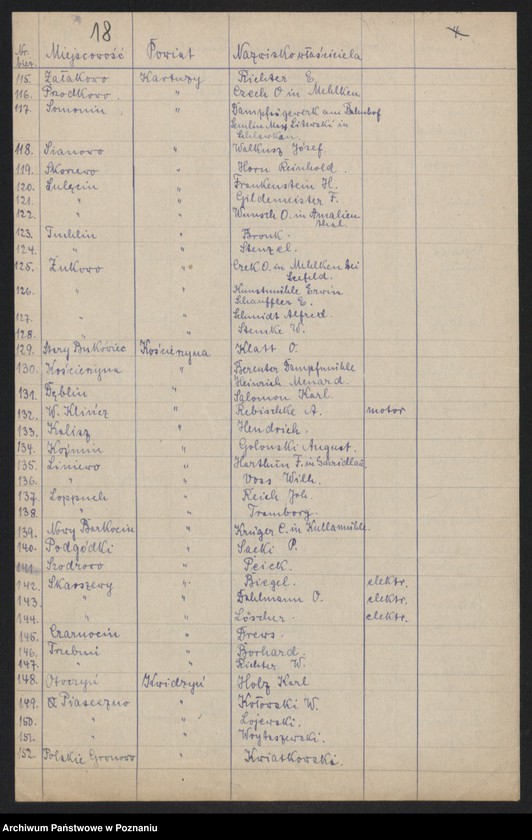 18
4.
Nr. bież. Miejscowość Powiat Nazwisko właściciela
115. Załakowo Kartuzy Richter E.
116. Przodkowo " Czech O. in Mehlken
117. Somonin " Dampfsägewerk am Bahnhof
Semlin Max Litewski in
118. Sianowo " Walkusz Józef
119. Skorzewo " Horn Reinhold.
120. Sulęcin " Frankenstein H.
121. " " Gildemeister F.
122. " " Wunsch O. in Amalien
thal.
123. Tuchlin " Bronk.
124. " " Stenzel.
125. Żukowo " Czek O. in Mehlken bei
Seefeld.
126. " " Kunstmühle Erwin
Schauffler E.
127. " " Schmidt Alfred.
128. " " Stemke W.
129. Stary Bukowiec Kościerzyna Klatt O.
130. Kościerzyna " Berenter Dampfmühle
Heinrich Menard.
131. Dęblin " Salomon Karl.
132. W. Klińcz " Rebischke A. motor
133. Kalisz " Hendrich.
134. Koźmin " Golonski August.
135. Liniewo " Harthun F. in
136. " " Voss Wilh.
137. Loppuch " Reich Joh.
138. " " Tramborg.
139. Nowy Barkocin " Krüger C. in Kullamühle.
140. Podgódki " Sacki P.
141. Szodrowo " Peick.
142. Skarszewy " Biegel. elektr.
143. " " Dahlmann O. elektr.
144. " " Löscher. elektr.
145. Czarnocin " Drews.
146. Trzebuń " Borhard.
147. " " Richter W.
148. Otoczyń Kwidzyń Holz Karl
149. Piaseczno " Kotowski W.
150. " " Lojewski.
151. " " Woytaszewski.
152. Polskie Gronowo " Kwiatkowski.
Archiwum Państwowe w Poznaniu
szukajwarchiwach.gov.pl